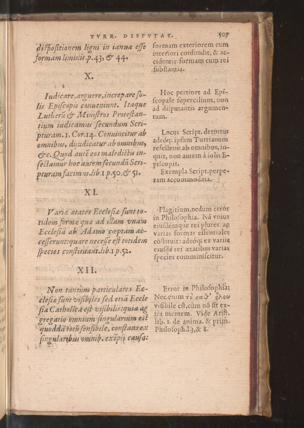 TVRR. DISPVTAT. 507
dispositionem ligni in ianua esse
formam liminis p.43. & 44.
X.
Iudicare, arguere, increpare so-
lis Episcopis conueniunt. Itaque
Lutherũ & Ministros Protestan-
tium iudicamus secundum Scri-
pturam. 1. Cor. 14. Conuincitur ab
omnibus, dijudicatur ab omnibus,
&c. Quod autẽ eos maledictis in-
sectamur hoc
scripturam facimus. lib. 1 p.50. & 51.
XI.
Variæ ætates Ecclesiæ sunt to-
tidem formæ quæ ad illam vnam
Ecclesiã ab Adamo cœptam ac-
cesserunt: quare necesse est totidem
species constituant. lib. 1 p.52.
XII.
Non tantum particulares Ec-
clesiæ sunt visibiles sed etiã Eccle
sia Catholica est visibilis: quia ag
gregatio omnium singularium est
quoddã totũ sensibile, constans ex
singularibus omnib. exẽpli causa:
formam exteriorem cum
interiori confundit, & ac-
cidentis formam cum rei
substantia.
Hoc pertinet ad Epi-
scopale supercilium, non
ad disputantis argumen-
tum.
Locus Script. detortus
adeóq; ipsum Turrianum
refellens: ab omnibus, in-
quit, non autem à solis E-
piscopis.
Exempla Script. perpe-
ram accommodata.
Plagitium, nedum error
in Philosophia. Nā vnius
eiusdemque rei plures aq
varias formas essentiales
cõstituit: adeóq; ex variis
eiusdē rei ætatibus varias
species comminiscitur.
Error in Philosophia;
Nec enim
visibile est, cum nõ sit ex-
tra mentem. Vide Arist.
lib. 1. de anima. & prim.
Philosoph.